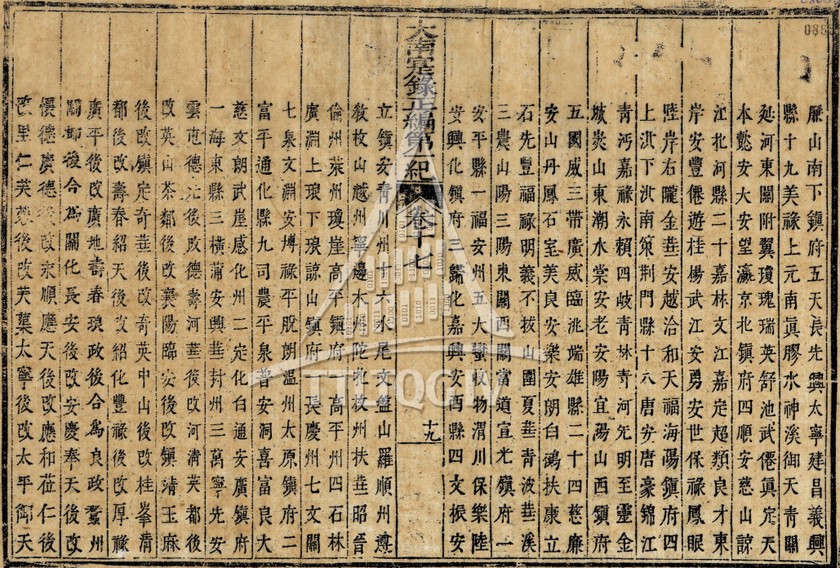 歷山南下鎮府五天長先興太寧建昌義興
縣十九美祿上元南眞膠水神溪御天青關
延河東關附翼瓊瑰瑞英舒池武僊眞定天
本懿安大安望瀛京北鎮府四順安慈山諒
江北河縣二十嘉林文江嘉定超類良才東
岸安豐僊遊桂楊武江安勇安世保祿鳳眼
陸岸右隴金華安越洽和天福海陽鎮府四
上洪下洪南策荆門縣十八唐安唐豪錦江
青沔嘉祿永賴四岐青林青河先明至靈金
城炎山東潮水棠安老安陽宜陽山西鎮府
五國威三帶廣威臨洮端雄縣二十四慈廉
安山丹鳳石室美良安樂安朗白鶴扶康立
石先豐福祿明義不拔山圍夏華青波華溪
三農山陽三陽東關西關當道宣光鎮府一
安平縣一福安州五大蠻收物渭川保樂陸
安興化鎮府三歸化嘉興安西縣四文振安
大南寔錄正編第一紀 卷十七 十九
立鎮安青川州十六水尾文盤山羅順州遵
敎枚山越州寧邊木州陀北枚州扶華昭晉
倫州萊州瓊崖高平鎮府一高平州四石林
廣淵上琅下琅諒山鎮府一長慶州七文關
七泉文淵安博祿平脫朗溫州太原鎮府二
富平通化縣九司農平泉普安洞喜富良大
慈文朗武崖感化州二定化白通安廣鎮府
一海東縣三橫蒲安興華封州三萬寧先安
雲屯德光後改德壽河華後改河清英都後
改英山茶鄰後改襄陽臨安後改鎮靖玉麻
後改鎮定奇華後改奇英中山後改桂峯清
都後改壽春紹天後改紹化豐祿後改厚祿
廣平後改廣地壽春琅政後合爲良政蠶州
關郡後合爲關化長安後改安慶奉天後改
懷德廣德後改永順應天後改應和莅仁後
改里仁芙葉後改芙蕖太寧後改太平御天